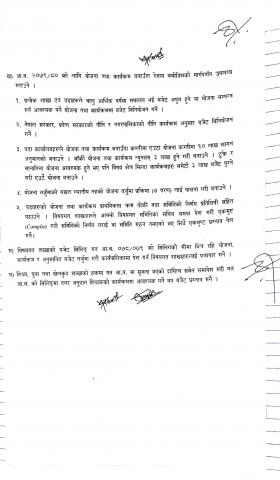 ख) आ.व. २०७९/८० को लागि योजना तथा कार्यक्रम बनाउँदा देहाय बमोजिमको मार्गदर्शन उपलब्ध
गराउने ।
१. प्रत्येक शाखा एवं वडाहरुले चालु आर्थिक वर्षमा सञ्चालन भई बजेट अपुग हुने वा योजना सम्पन्न
गर्न आवश्यक पर्ने योजना तथा कार्यक्रममा बजेट विनियोजन गर्ने ।
२. नेपाल सरकार, प्रदेश सरकारको नीति र नगरपालिकाको नीति कार्यक्रम अनुसार बजेट विनियोजन
गर्ने ।
३. वडा कार्यालयहरुले योजना तथा कार्यक्रम बनाउँदा कम्तीमा एउटा कम्तीमा १० लाख लागत
अनुमानको बनाउने । बाँकी योजना तथा कार्यक्रम न्यूनतम २ लाख हुने गरी बनाउने । टुक्रे र
सानातिना योजना आवश्यक हुने भए पनि विषय क्षेत्र भित्रका कार्यक्रमहरु समेटी २ लाख बजेट पुग्ने
गरी एउटै योजना बनाउने ।
४. योजना तर्जुमाको सम्बन्धमा स्थानीय तहको योजना तर्जुमा प्रक्रिया (७ चरण) लाई पालना गरी बनाउने ।
५. वडाहरुको योजना तथा कार्यक्रम प्राथमिकता क्रम तोकी वडा समितिको निर्णय प्रतिलिपी सहित
पठाउने । विषयगत शाखाहरुले आफ्नो विषयगत समितिका सचिव समक्ष पेश गरी एकमुष्ट
(Compile) गरी समितिको निर्णय गराई वा समिति गठन नभएको भए सिधै एकमुष्ट प्रस्ताव पेश
गर्ने ।
ग) विषयगत शाखाको बजेट सिलिङ गत आ.व. ०७८/०७९ को सिलिंगको सीमा भित्र रहि योजना,
कार्यक्रम र अनुमानित बजेट तर्जुमा गरी कार्यपालिकामा पेश गर्न विषयगत शाखाहरुलाई पत्राचार गर्ने ।
घ) शिक्षा, युवा तथा खेलकुद शाखाको हकमा गत आ.व. मा सृजना भएको दायित्व समेत समावेश गरी गत
आ.व. को सिलिङमा नगर अनुदान शिक्षकको कार्यक्रममा आवश्यक पर्ने थप बजेट प्रस्ताव गर्ने ।